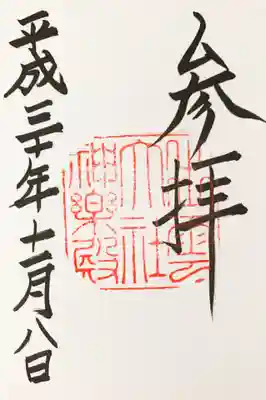 参拝
出雲
大社
神楽殿
平成三十年十一月八日